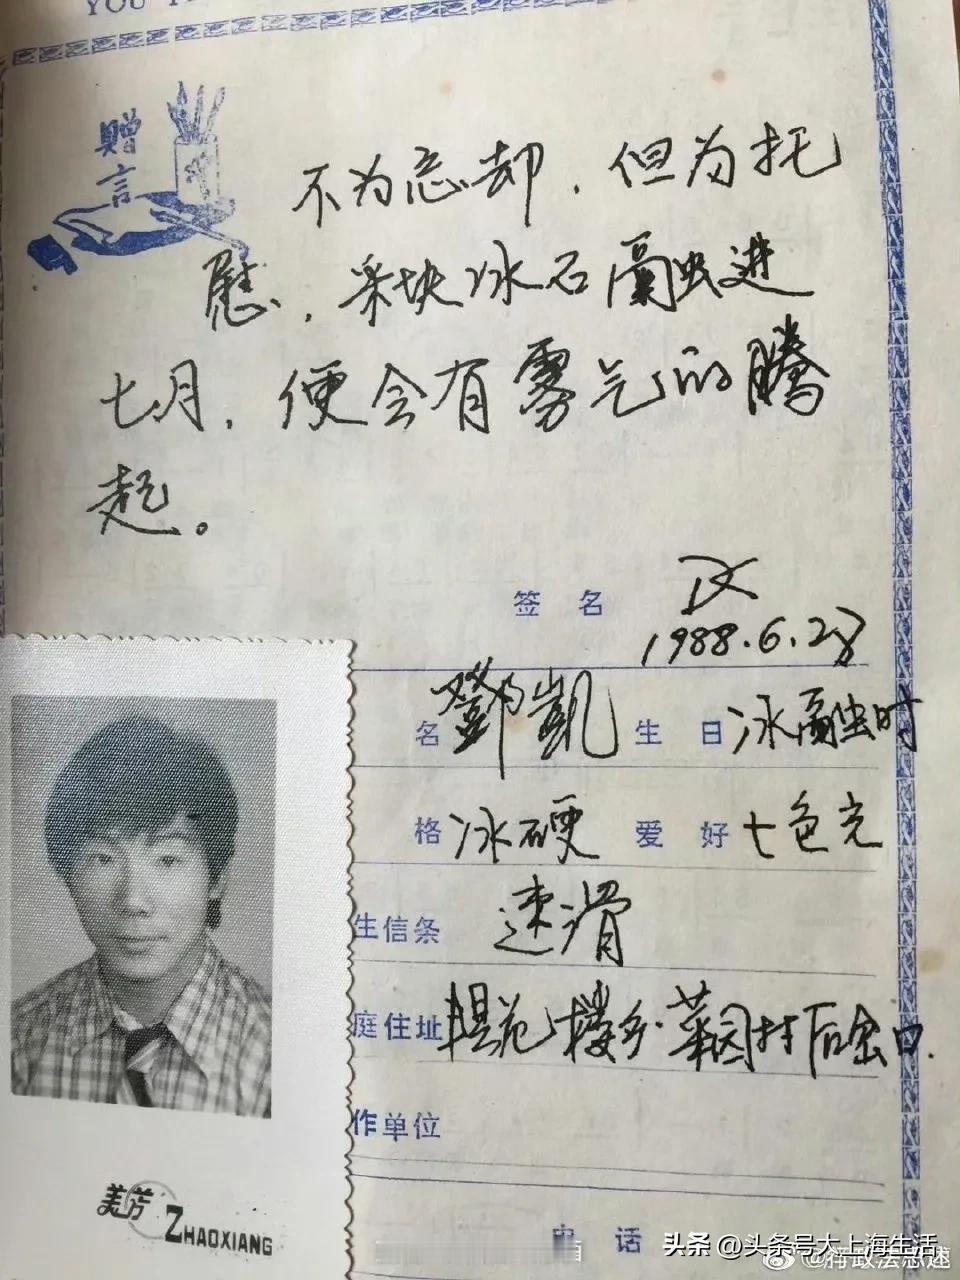 YOU
赠言
不为忘却，但为托
慰，采块冰石融进
七月，便会有雾气的腾
起。
签名
1988.6.28
名 鄧凱 生日 冰融时
格 冰硬 爱好 七色光
生信条 速滑
庭住址 楼乡·菜园村后
作单位
电话
美芳 ZHAOXIANG
头条 @头条号大上海生活